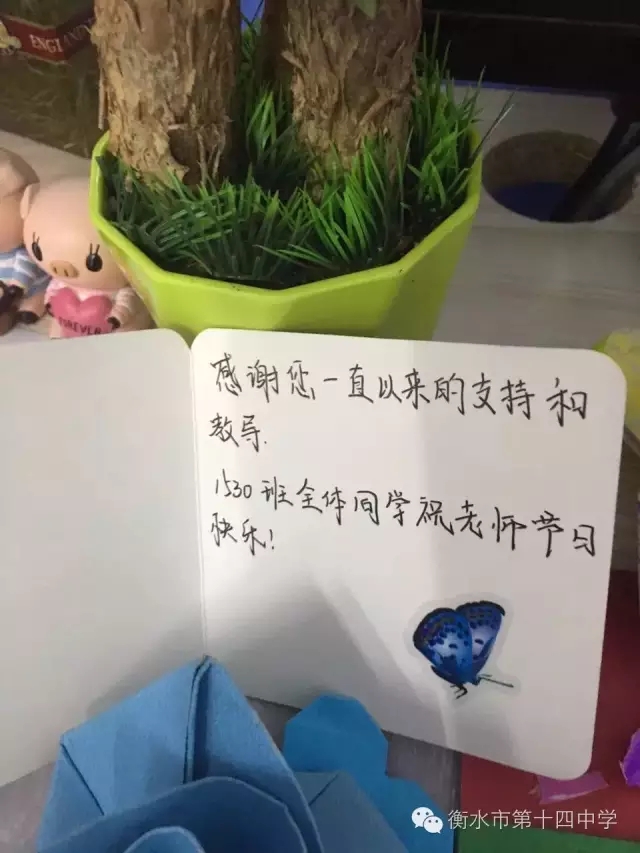 ENGL
FOREVER
感谢您一直以来的支持和
教导.
1530班全体同学祝老师节日
快乐!
衡水市第十四中学